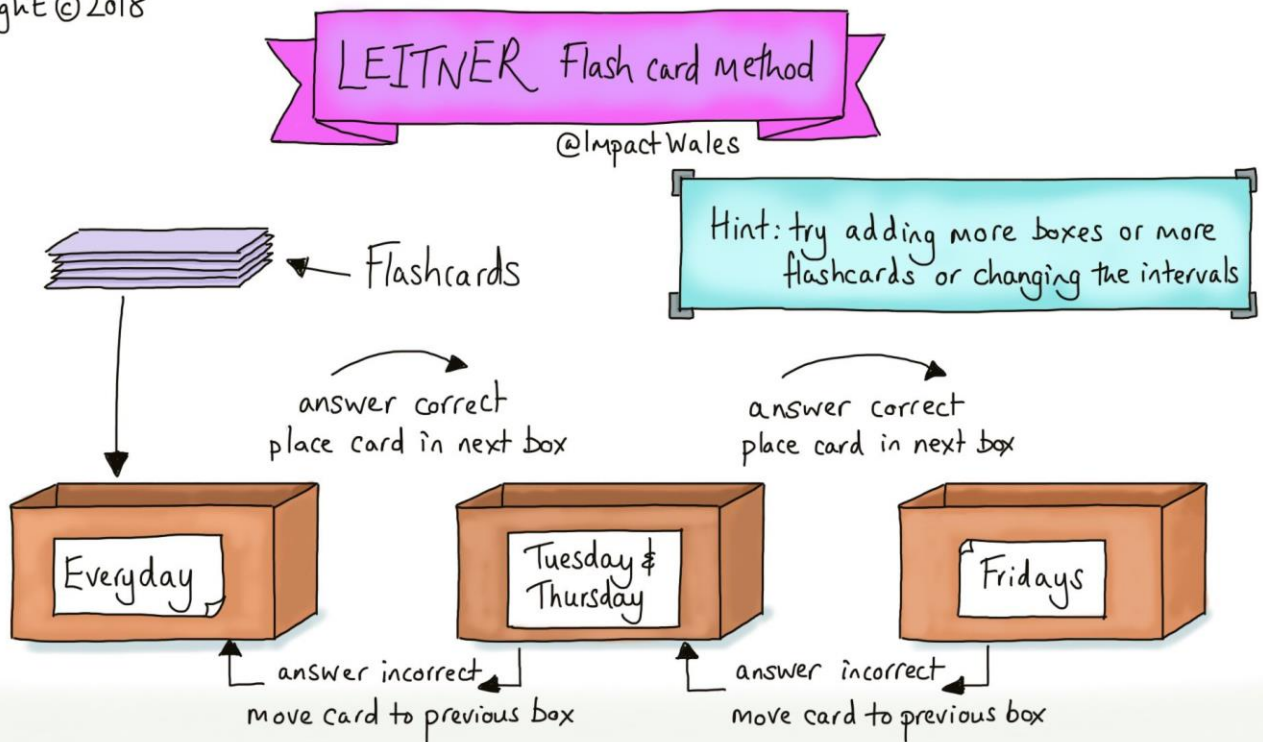 ght © 2018
LEITNER Flash card method
@ImpactWales
Hint: try adding more boxes or more
flashcards or changing the intervals
Flashcards
answer correct
place card in next box
answer correct
place card in next box
Everyday
Tuesday &
Thursday
Fridays
answer incorrect
move card to previous box
answer incorrect
move card to previous box